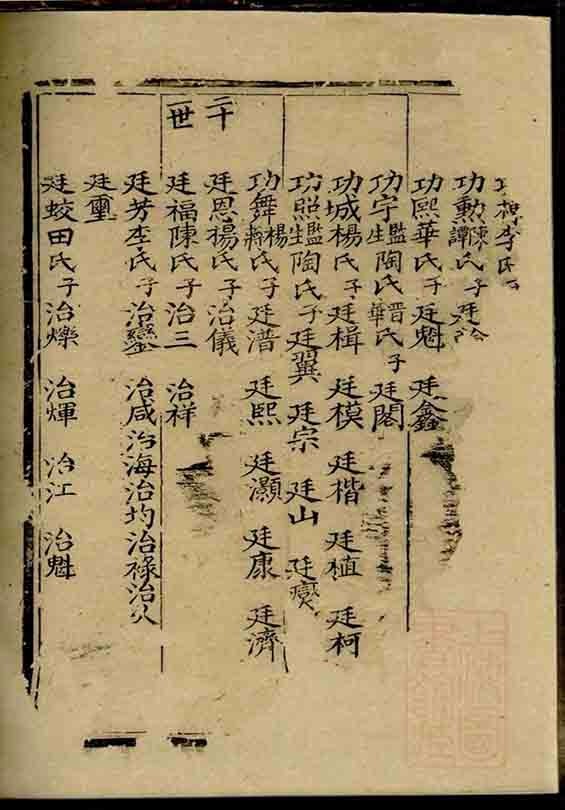 李氏子
功勲陳譚氏子廷
功熙華氏子廷魁 廷鑫
功宇生監陶氏晋華氏子廷閣
功城楊氏子廷楫 廷模 廷楷 廷植 廷柯
功照生監陶氏子廷翼 廷宗 廷山 廷燮
功舞楊蔣氏子廷溍 廷熙 廷灝 廷康 廷濟
二十一世
廷恩楊氏子治儀
廷福陳氏子治三 治祥
廷芳李氏子治鑾 治咸治海治均治祿治久
廷璽
廷蛟田氏子治爍 治煇 治江 治魁